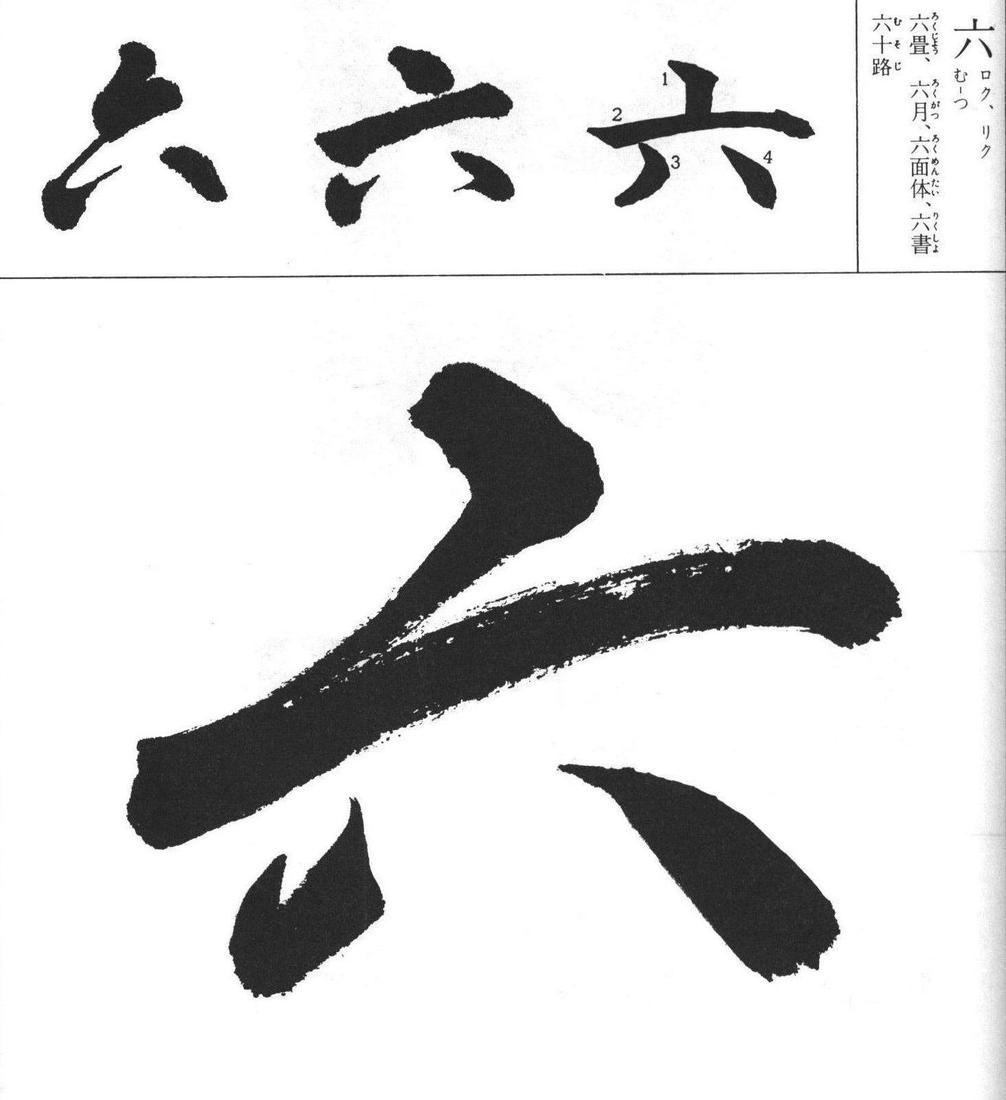 六 ロク、リク
むーつ
六畳、六月、六面体、六書
ろくじょう ろくがつ ろくめんたい りくしょ
六十路
むそじ
六 1 2 3 4
六
六
六